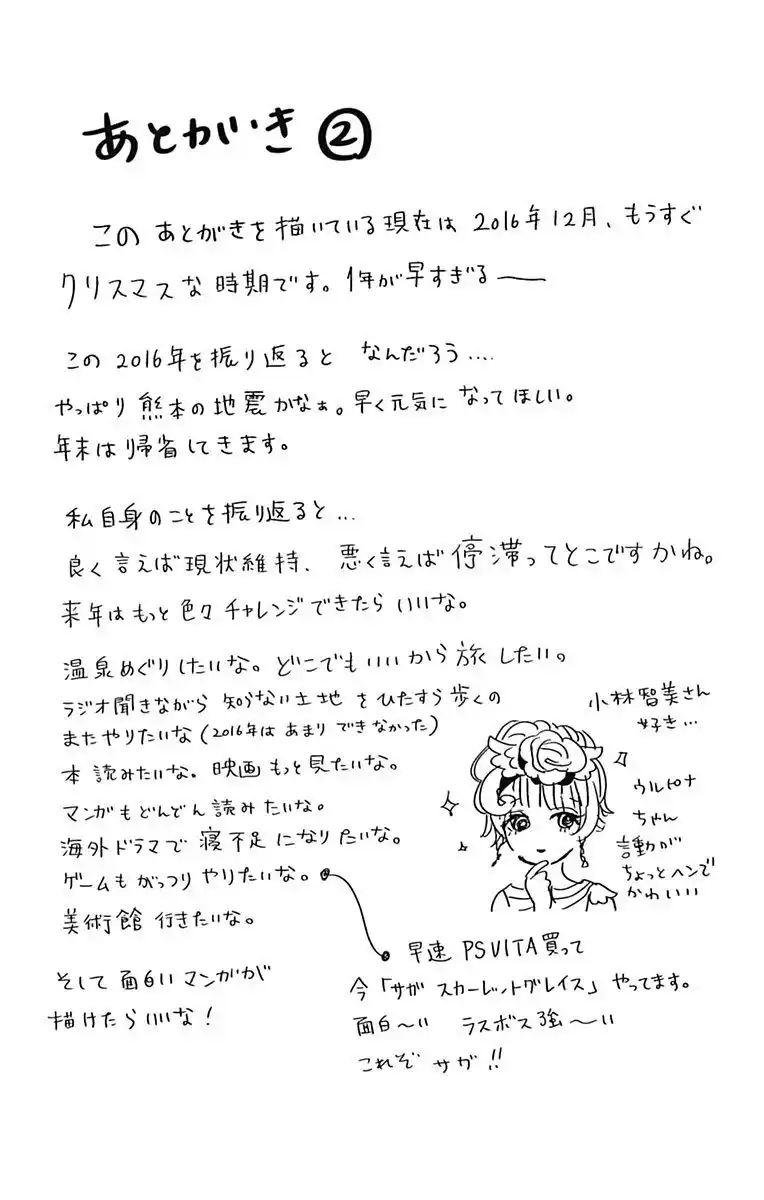 あとがき②
このあとがきを描いている現在は2016年12月、もうすぐ
クリスマスな時期です。1年が早すぎるー
この2016年を振り返ると なんだろう....
やっぱり熊本の地震かなぁ。早く元気になってほしい。
年末は帰省してきます。
私自身のことを振り返ると...
良く言えば現状維持、悪く言えば停滞ってとこですかね。
来年はもっと色々チャレンジできたらいいな。
温泉めぐりしたいな。どこでもいいから旅したい。
ラジオ聞きながら 知らない土地をひたすら歩くの
またやりたいな(2016年はあまりできなかった)
本読みたいな。映画もっと見たいな。
マンガもどんどん読みたいな。
海外ドラマで寝不足になりたいな。
ゲームもがっつりやりたいな。
美術館行きたいな。
そして面白いマンガが
描けたらいいな!
小林智美さん
好き...
ウルピナ
ちゃん
言動が
ちょっとヘンで
かわいい
早速 PSVITA買って
今「サガ スカーレットグレイス」やってます。
面白〜い ラスボス強〜い
これぞ サガ!!